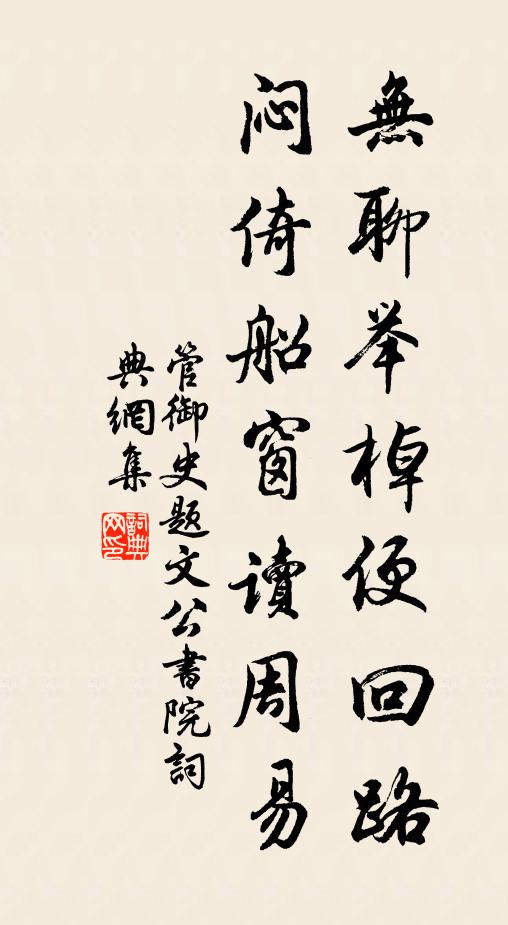 無聊举棹便回路
闷倚船窗讀周易
管御史题文公書院詞
典網集
詞典
网印